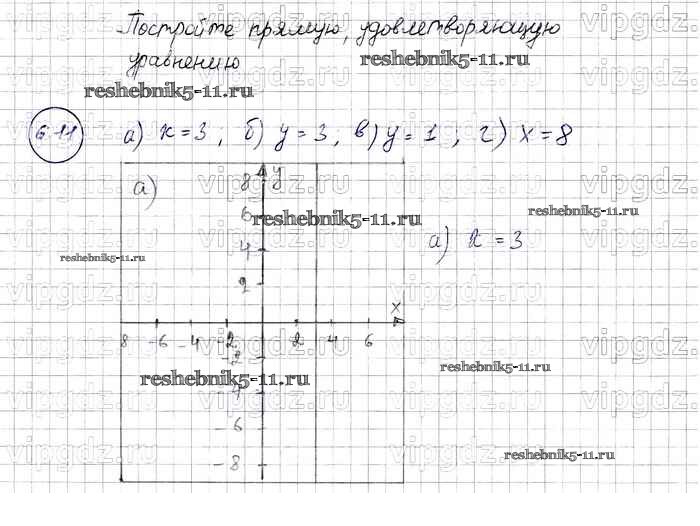 Постройте прямую, удовлетворяющую
уравнению
reshebnik5-11.ru
reshebnik5-11.ru
6.11 а) x = 3 ; б) y = 3 ; в) y = 1 ; г) x = 8
а)
8 y
6
reshebnik5-11.ru
reshebnik5-11.ru
4
а) x = 3
reshebnik5-11.ru
2
x
8 -6 -4 -2 2 4 6
-2
reshebnik5-11.ru
reshebnik5-11.ru
-6
-8
reshebnik5-11.ru
vipgdz.ru vipgdz.ru vipgdz.ru vipgdz.ru